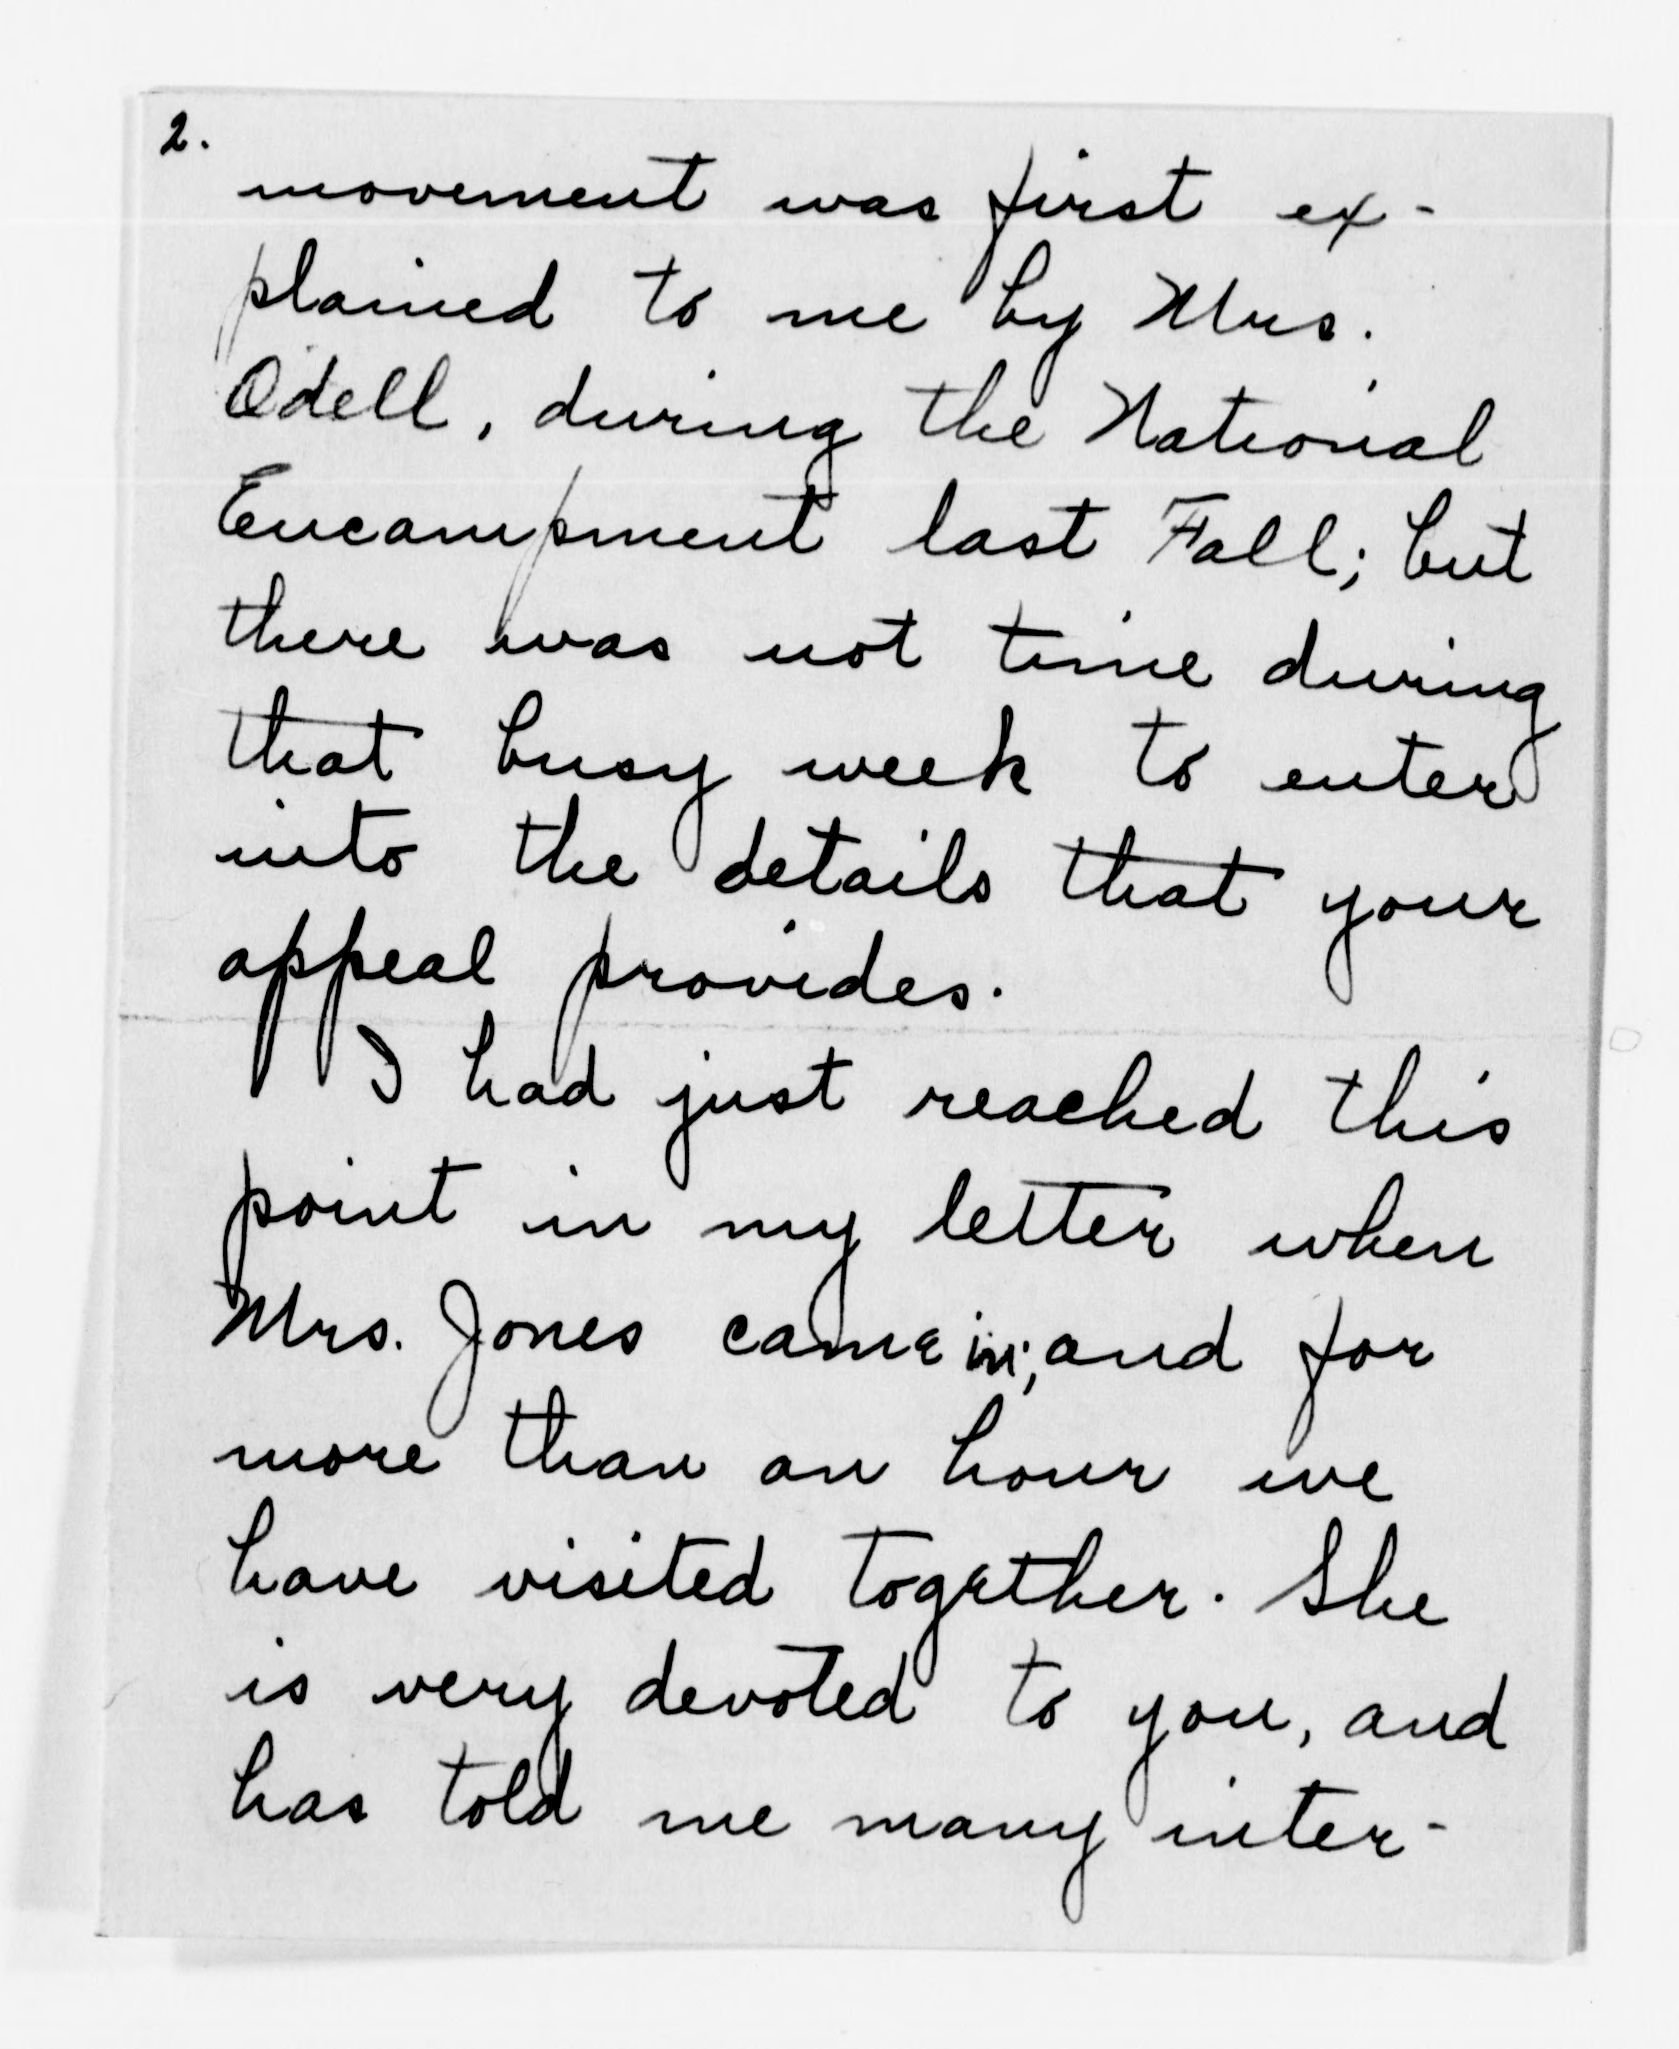 2.
movement was first ex-
plained to me by Mrs.
Odell, during the National
Encampment last Fall; but
there was not time during
that busy week to enter
into the details that your
appeal provides.
I had just reached this
point in my letter when
Mrs. Jones came in; and for
more than an hour we
have visited together. She
is very devoted to you, and
has told me many inter-